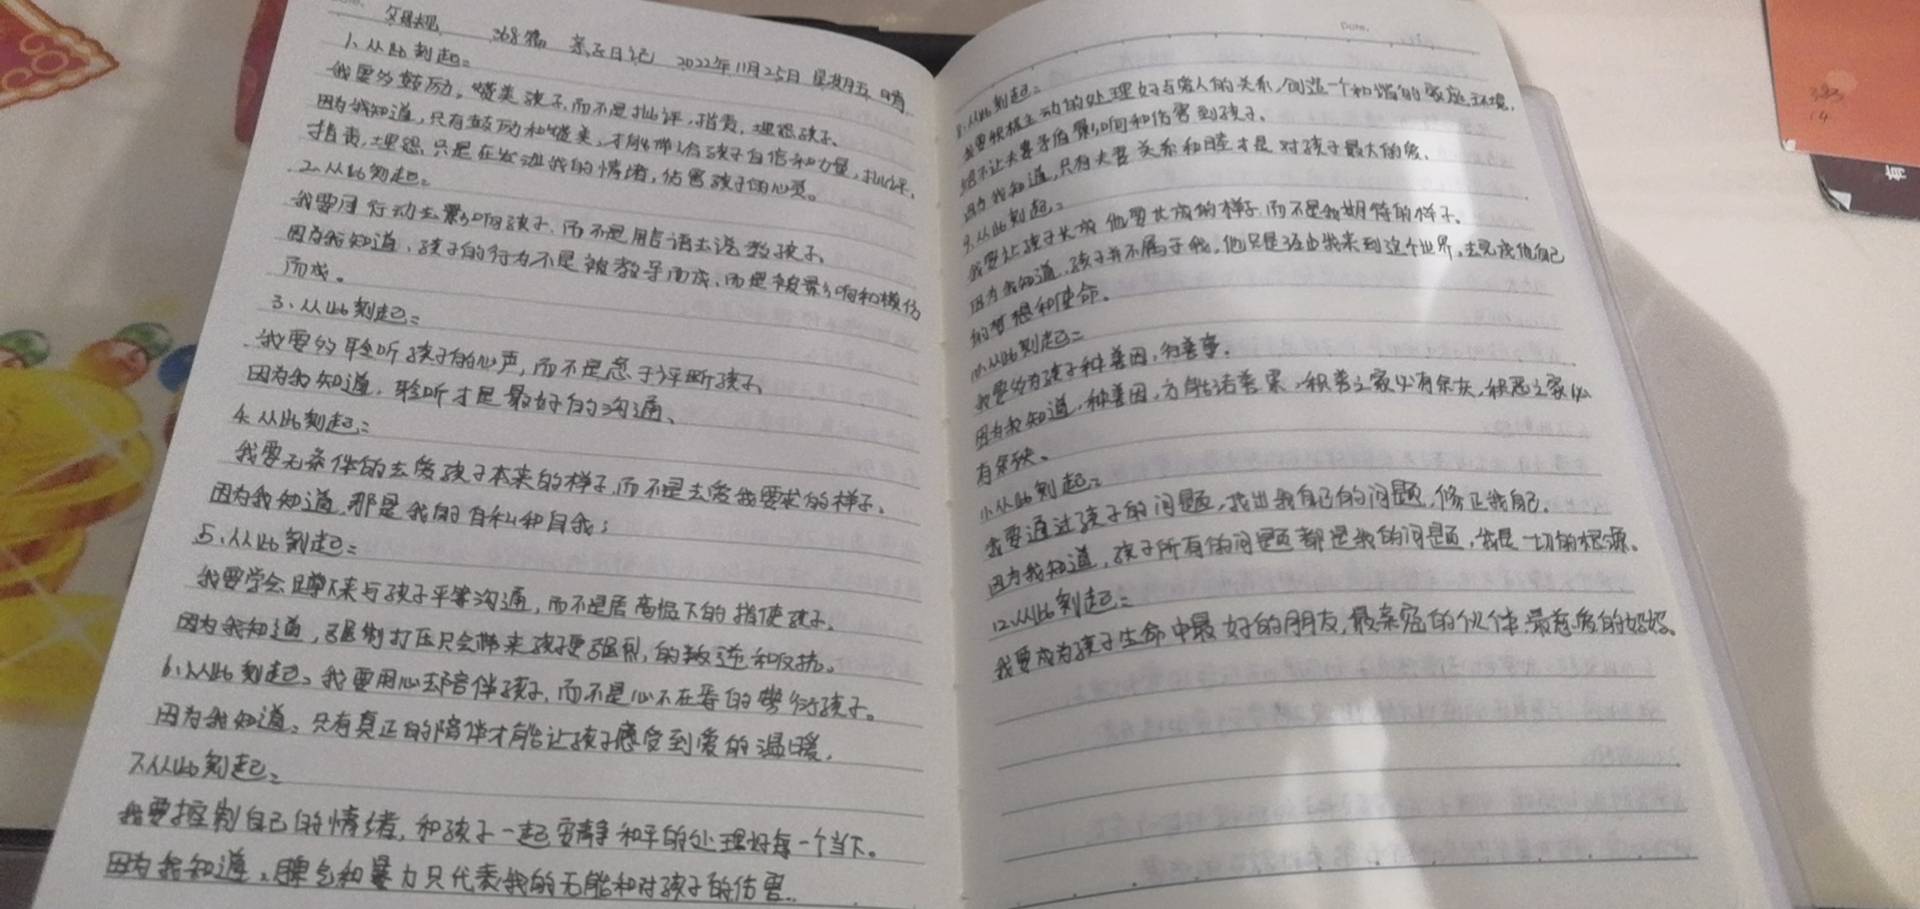 父母规 368稿 亲子日记 2022年11月25日 星期五 晴
1、从此刻起:
我要多鼓励,赞美孩子,而不是批评,指责,埋怨孩子、
因为我知道,只有鼓励和赞美,才能带给孩子自信和力量,批评,
指责,埋怨只是在发泄我的情绪,伤害孩子的心灵。
2、从此刻起:
我要用行动去影响孩子,而不是用言语去说教孩子、
因为我知道,孩子的行为不是被教导而成,而是被影响和模仿
而成。
3、从此刻起:
我要多聆听孩子的心声,而不是急于评断孩子、
因为我知道,聆听才是最好的沟通、
4、从此刻起:
我要无条件的去爱孩子本来的样子,而不是去爱我要求的样子、
因为我知道,那是我的自私和自我;
5、从此刻起:
我要学会蹲下来与孩子平等沟通,而不是居高临下的指使孩子、
因为我知道,强制打压只会带来孩子更强烈,的叛逆和反抗。
6、从此刻起:我要用心去陪伴孩子,而不是心不在焉的敷衍孩子。
因为我知道:只有真正的陪伴才能让孩子感受到爱的温暖,
7、从此刻起:
我要控制自己的情绪,和孩子一起安静和平的处理好每一个当下。
因为我知道:脾气和暴力只代表我的无能和对孩子的伤害..
Date.
8、从此刻起:
我要积极主动的处理好与爱人的关系,创造一个和谐的家庭环境,
绝不让夫妻矛盾影响和伤害到孩子、
因为我知道,只有夫妻关系和睦才是对孩子最大的爱、
9、从此刻起:
我要让孩子长成他要长成的样子,而不是我期待的样子、
因为我知道,孩子并不属于我,他只是经由我来到这个世界,去完成他自己
的梦想和使命。
10、从此刻起:
我要多为孩子种善因,行善事,
因为我知道,种善因,方能结善果,积善之家必有余庆,积恶之家必
有余殃、
11、从此刻起:
我要通过孩子的问题,找出我自己的问题,修正我自己、
因为我知道,孩子所有的问题都是我的问题,我是一切的根源。
12、从此刻起:
我要成为孩子生命中最好的朋友,最亲密的伙伴,最慈爱的妈妈。
有